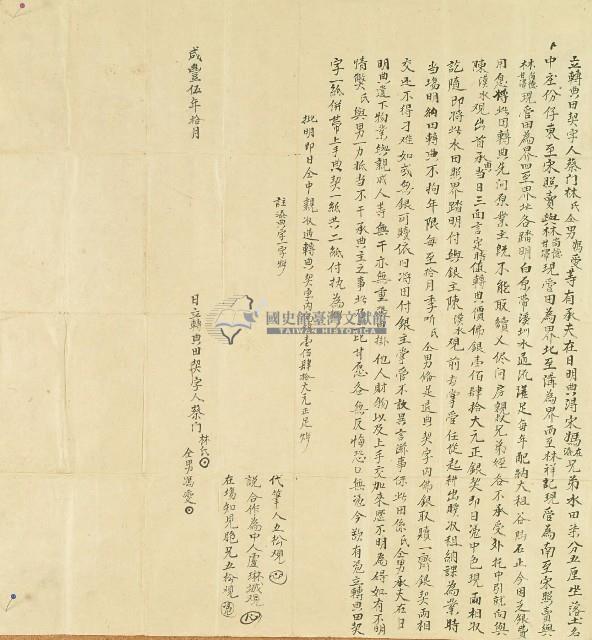 立轉典田契字人蔡門林氏仝男馮愛等有承夫在日明典得宋媽在兄弟水田柒分五厘坐落土名
中庄份仔東至宋照賣與林現管田為界北至溝為界西至林祥記現管為南至宋照賣與
林現管田為界四至界址各踏明白原帶溪圳水通流灌足每年配納大租谷石正今因乏銀費
用愿將此田轉典先問原業主既不能取續又侭問房親叔兄弟姪各不承受外托中引就向與
陳溪水観出首承當日三面言定時值轉典價佛銀壹佰肆拾大元正銀契即日仝中色現面相收
訖隨即將此水田照界踏明付與銀主陳溪水現前去掌管任從起耕出贌收租納課為業時
當場明納田轉典不拘年限每至拾月季听氏仝男俻足退典契字內佛銀取贖一齊銀契兩相
交还不得刁难如或無銀可贖依旧將田付銀主掌管不敢異言滋事保此田係氏仝男承夫在日
明典遺下物業與親戚人等無干亦無重張掛他人財物以及上手交加來歷不明為碍如有不明
情獘氏與男一力抵當不干承典主之事此甘愿各無反悔恐口無憑今欲有憑立轉典田契
字一紙併帶上手典契一紙共二紙付执為
批明即日仝中親收過轉典契重內壹佰肆拾大元正足炤
註添典字一字炤
代筆人五松観
說合作為中人盧琳
在場知見胞兄五松観
日立轉典田契字人蔡門林氏
仝男馮愛
咸豐伍年拾月
國史館臺灣文獻館
TAIWAN HISTORICA